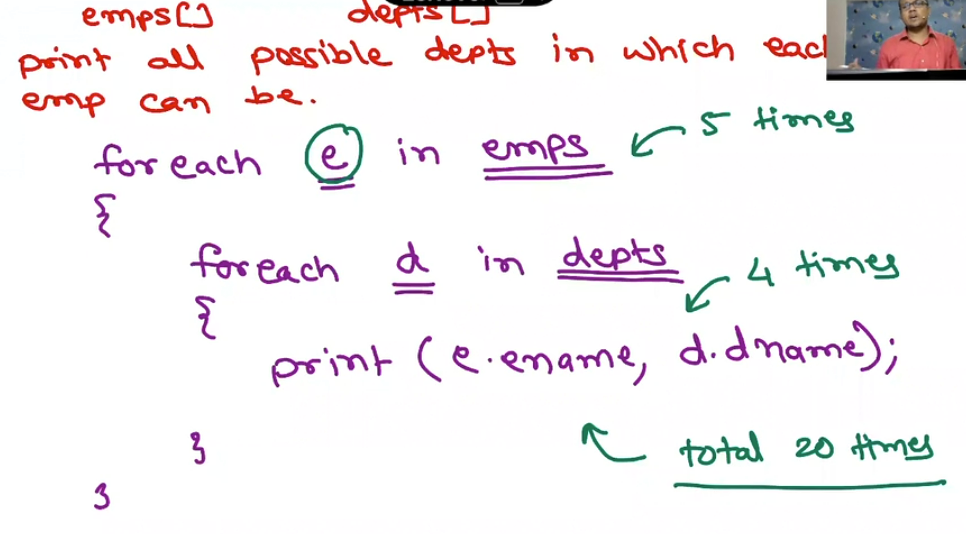 emps[] depts[]
print all possible depts in which
emp can be.
foreach e in emps 5 times
{
foreach d in depts 4 times
{
print (e.ename, d.dname);
}
total 20 times
}